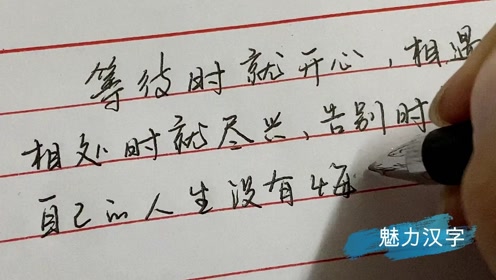 等待时就开心,相遇
相处时就尽兴、告别时
自己的人生没有悔
魅力汉字